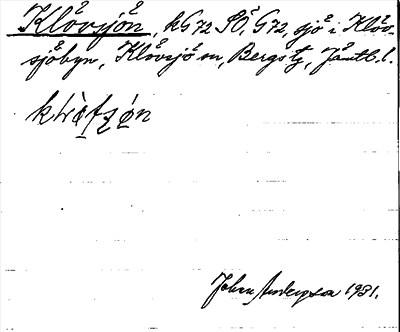 Klövsjön, kG72 SÖ, G72, sjö i Klöv-
sjöbyn, Klövsjö sn, Bergs tg, Jämtl. l.
John Andersson 1931.